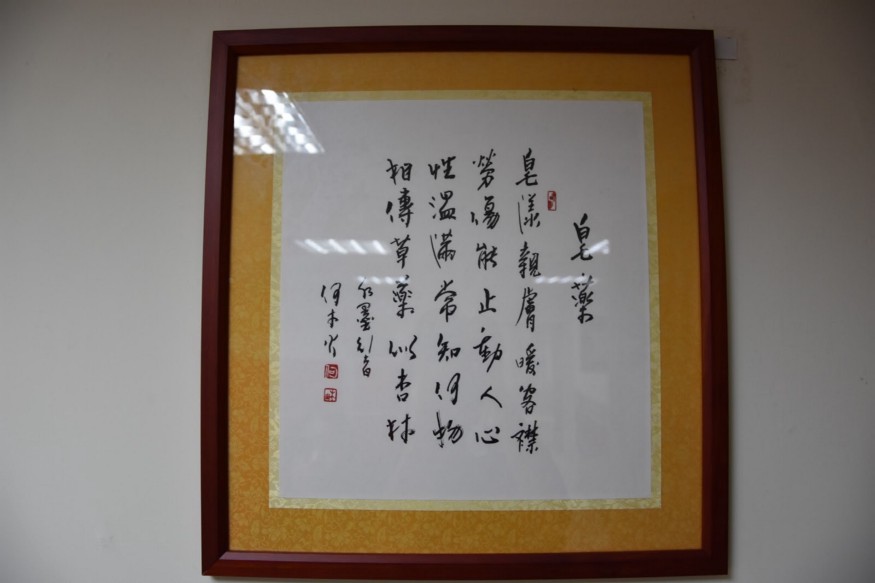 皂藥
皂漾親膚暖客襟
勞傷能止動人心
性溫滿常知何物
相傳草藥似杏林
水墨創音
何木火